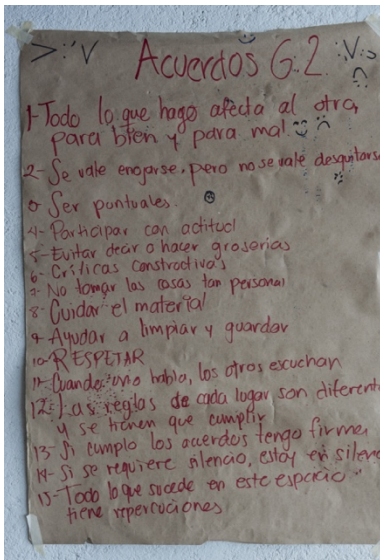 >:'v Acuerdos G.2 :V:>
1-Todo lo que hago afecta al otro,
para bien y para mal.
2-Se vale enojarse, pero no se vale desquitarse
Ser puntuales.
4-Participar con actitud
5-Evitar decir o hacer grosarias
6-Críticas constructivas
7-No tomar las cosas tan personal
8-Cuidar el material
9-Ayudar a limpiar y guardar
10-RESPETAR
11-Cuando uno habla, los otros escuchan
12-Las reglas de cada lugar son diferente
y se tienen que cumplir
13-Si cumplo los acuerdos tengo firma
14-Si se requiere silencio, estoy en silenc
15-Todo lo que sucede en este espacio
tiene repercuciones